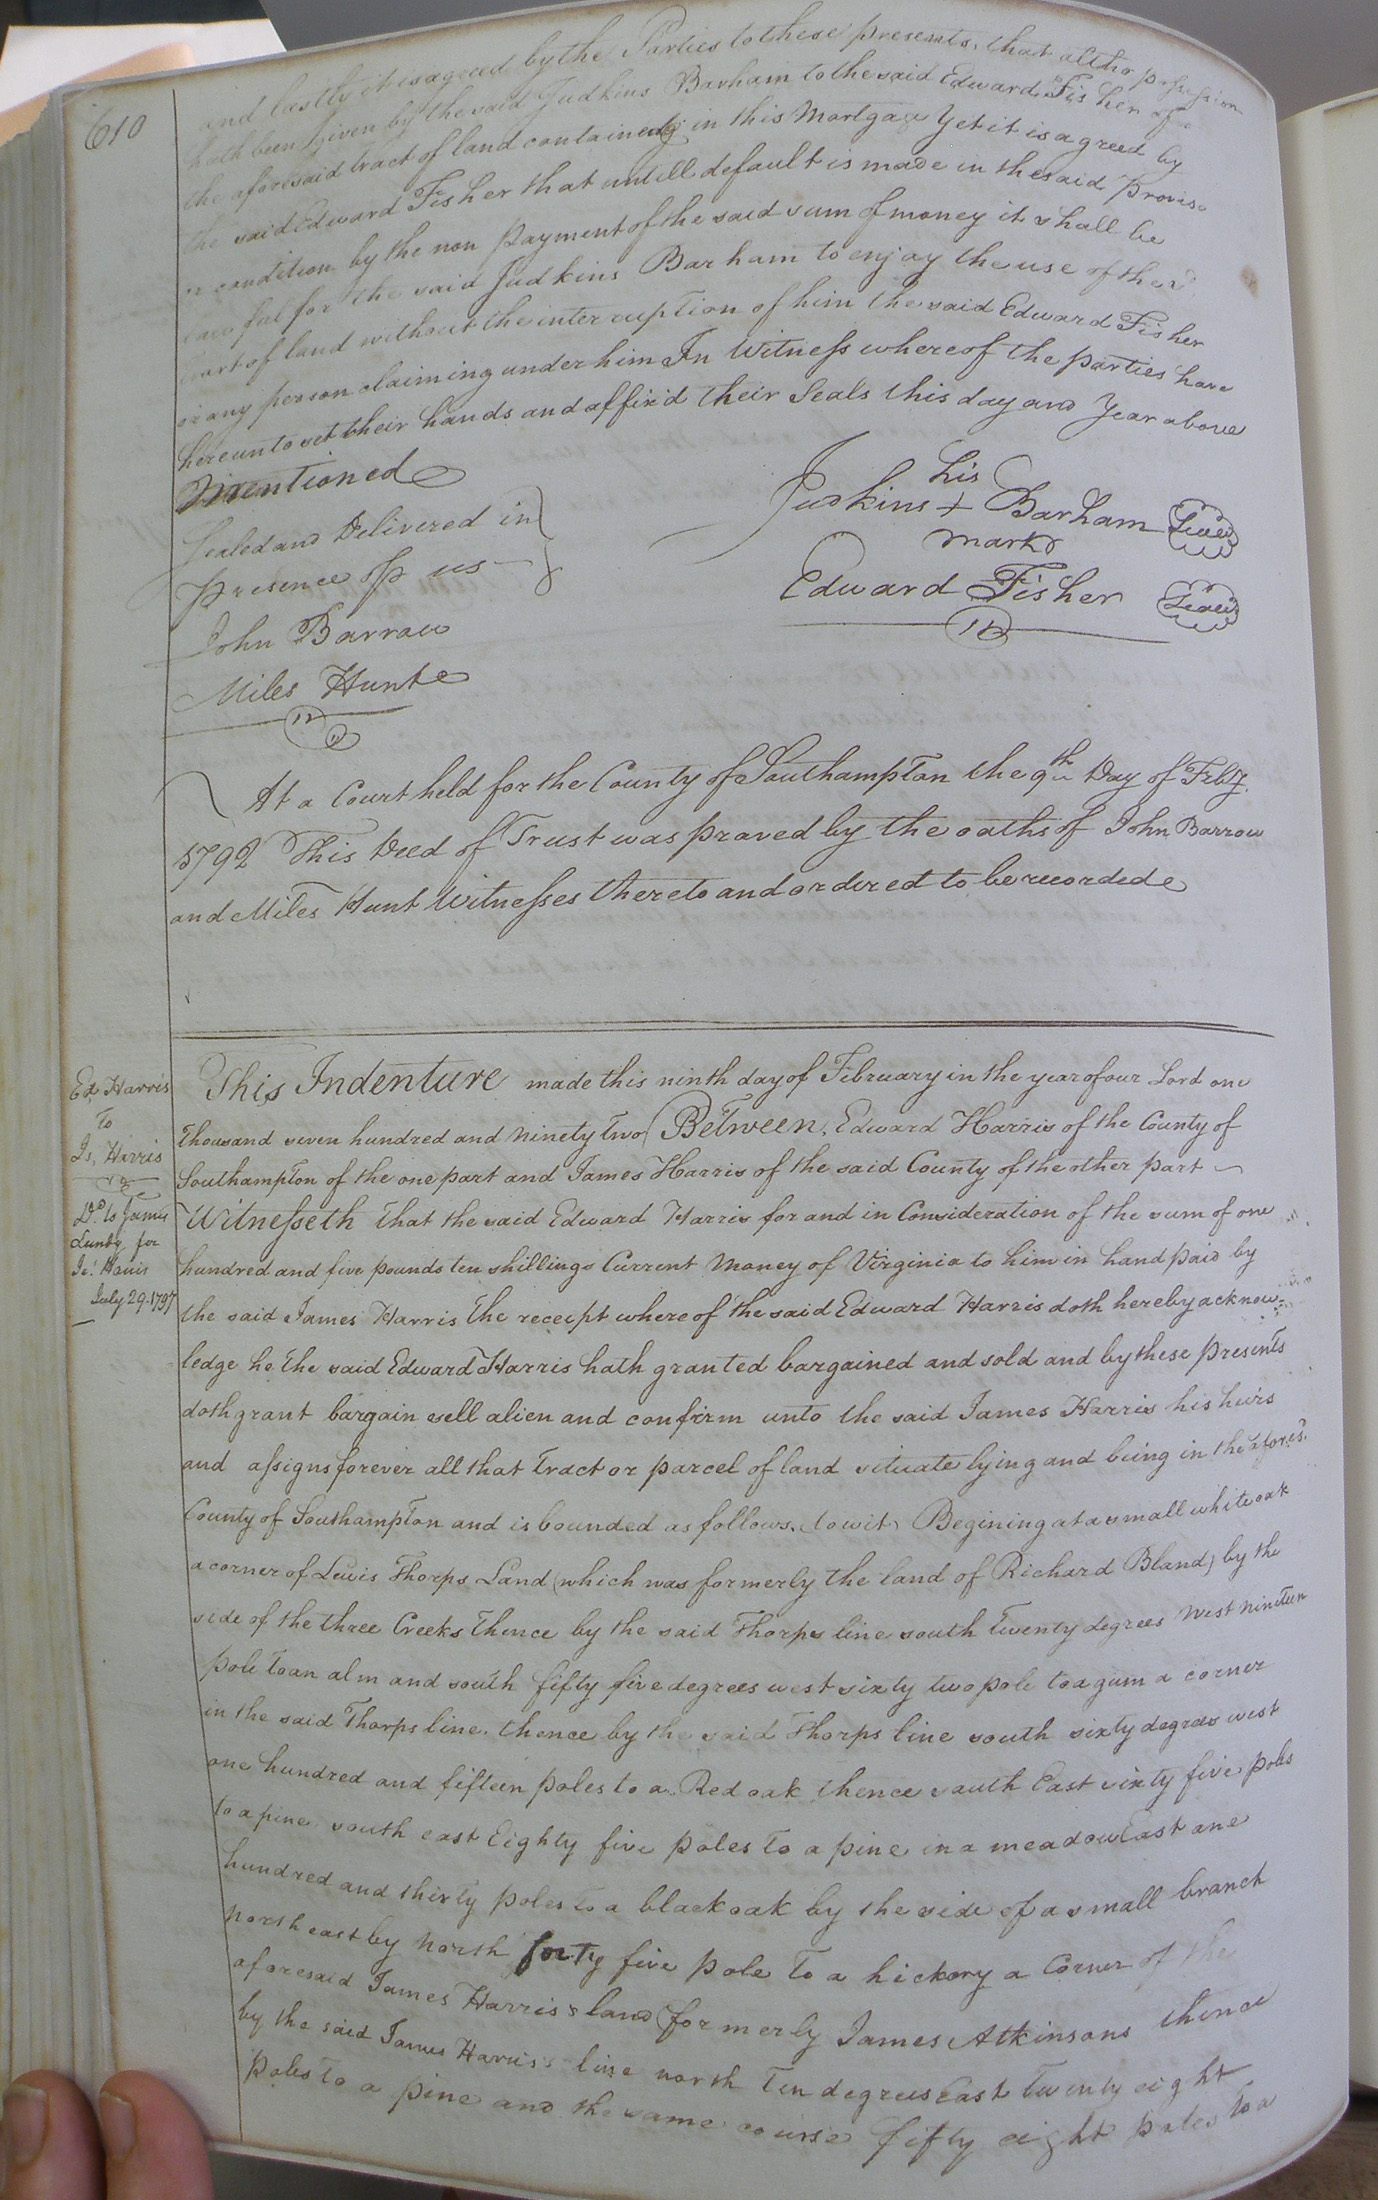 610
and lastly it is agreed by the Parties to these presents, that altho possession
hath been given by the said Judkins Barham to the said Edward Fisher of
the aforesaid tract of land contained in this Mortgage Yet it is agreed by
the said Edward Fisher that untill default is made in the said Proviso
or condition by the non payment of the said sum of money it shall be
lawful for the said Judkins Barham to enjoy the use of the sd
tract of land without the interruption of him the said Edward Fisher
or any person claiming under him In Witness whereof the parties have
hereunto set their hands and affix'd their Seals this day and Year above
Mentioned
Sealed and Delivered in
presence of us
John Barrow
Miles Hunt
his
Judkins + Barham Seal
mark
Edward Fisher Seal
At a Court held for the County of Southampton the 9th Day of Feby.
1792 This Deed of Trust was proved by the oaths of John Barrow
and Miles Hunt Witnesses thereto and ordered to be recorded
Ed Harris
To
Js. Harris
Dd. to James
Lundy for
Js. Harris
July 29. 1797
This Indenture made this ninth day of February in the year of our Lord one
thousand seven hundred and ninety two Between Edward Harris of the County of
Southampton of the one part and James Harris of the said County of the other part
Witnesseth that the said Edward Harris for and in Consideration of the sum of one
hundred and five pounds ten shillings Current Money of Virginia to him in hand paid by
the said James Harris the receipt whereof the said Edward Harris doth hereby acknow-
ledge he the said Edward Harris hath granted bargained and sold and by these presents
doth grant bargain sell alien and confirm unto the said James Harris his heirs
and assigns forever all that tract or parcel of land situate lying and being in the afores.d
County of Southampton and is bounded as follows, towit, Begining at a small white oak
a corner of Lewis Thorps Land (which was formerly the land of Richard Bland) by the
side of the three Creeks thence by the said Thorps line south twenty degrees West nineteen
pole to an alm and south fifty five degrees west sixty two pole to a gum a corner
in the said Thorps line, thence by the said Thorps line south sixty degrees west
one hundred and fifteen poles to a Red oak thence south East sixty five poles
to a pine south east Eighty five poles to a pine in a meadow East one
hundred and thirty poles to a black oak by the side of a small branch
north east by north forty five pole to a hickory a Corner of the
aforesaid James Harris's land (formerly James Atkinsons thence
by the said James Harris's line north ten degrees East twenty eight
poles to a pine and the same course fifty eight poles to a